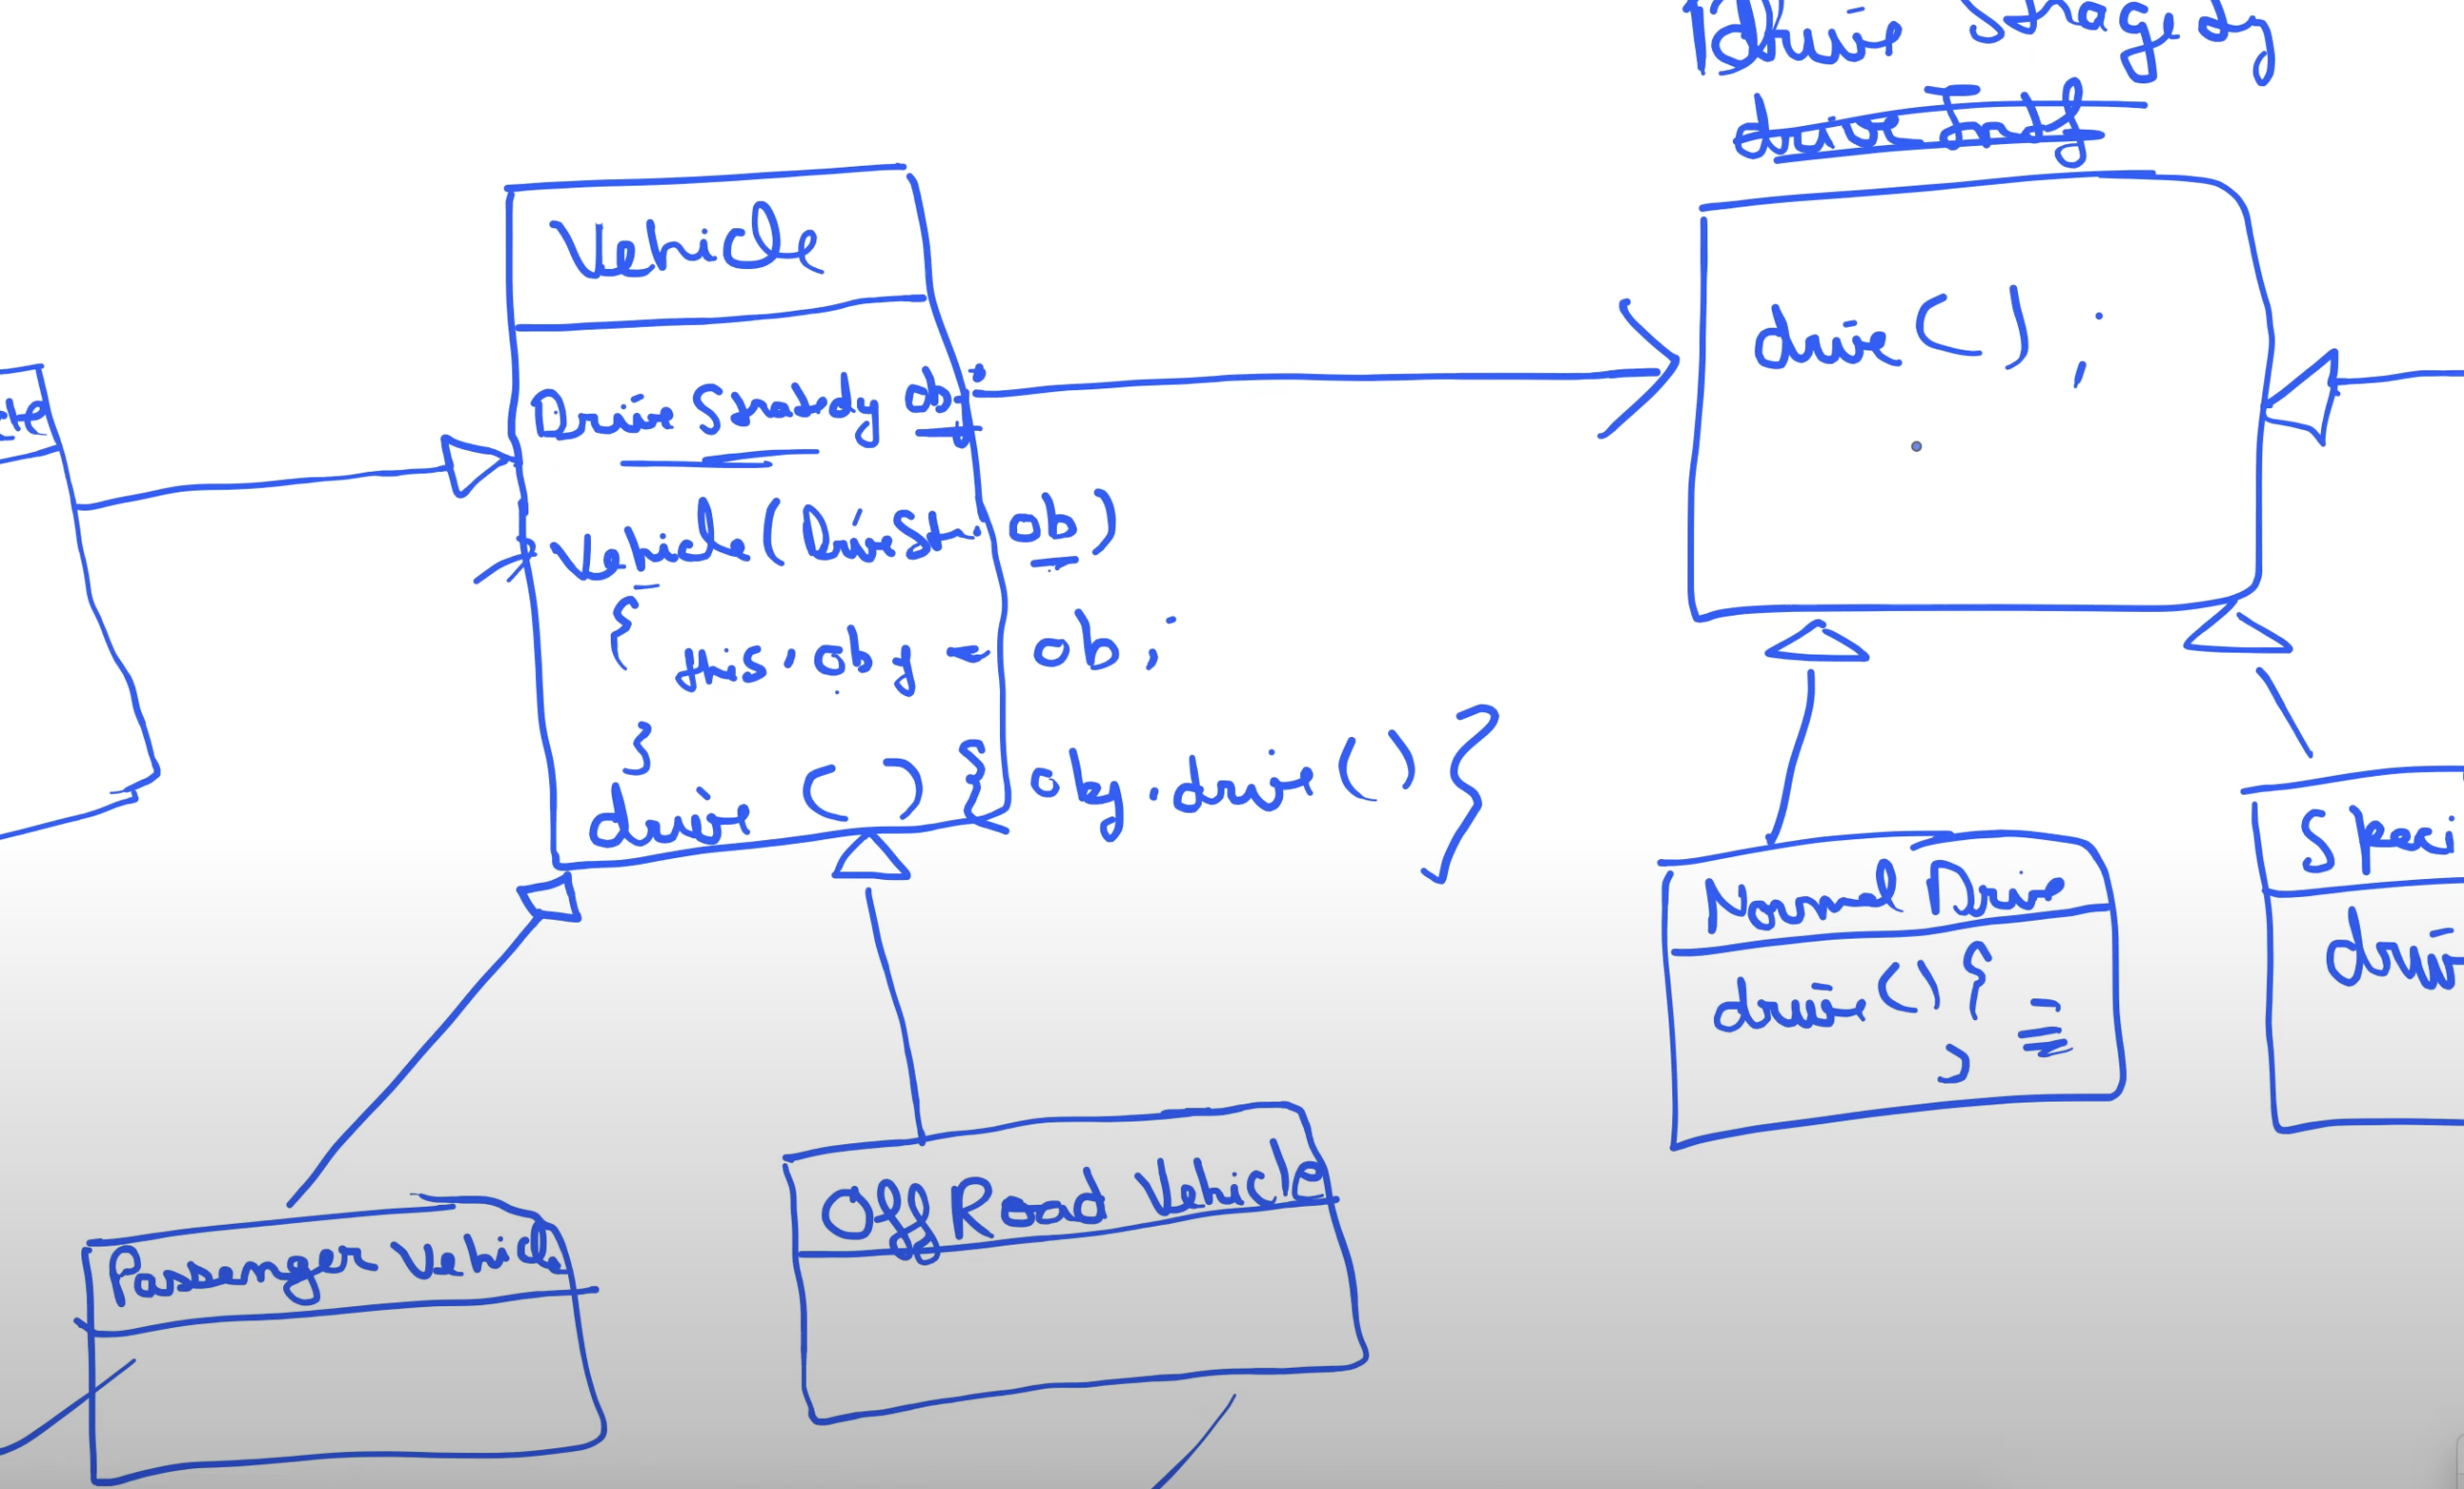 Drive Strategy
Vehicle
Drive Strategy obj
Vehicle(DriveSt.. ob)
{
this.obj = ob;
}
drive () { obj.drive() }
drive();
Normal Drive
drive() {
}
drive
Passenger Vehicle
Off Road Vehicle